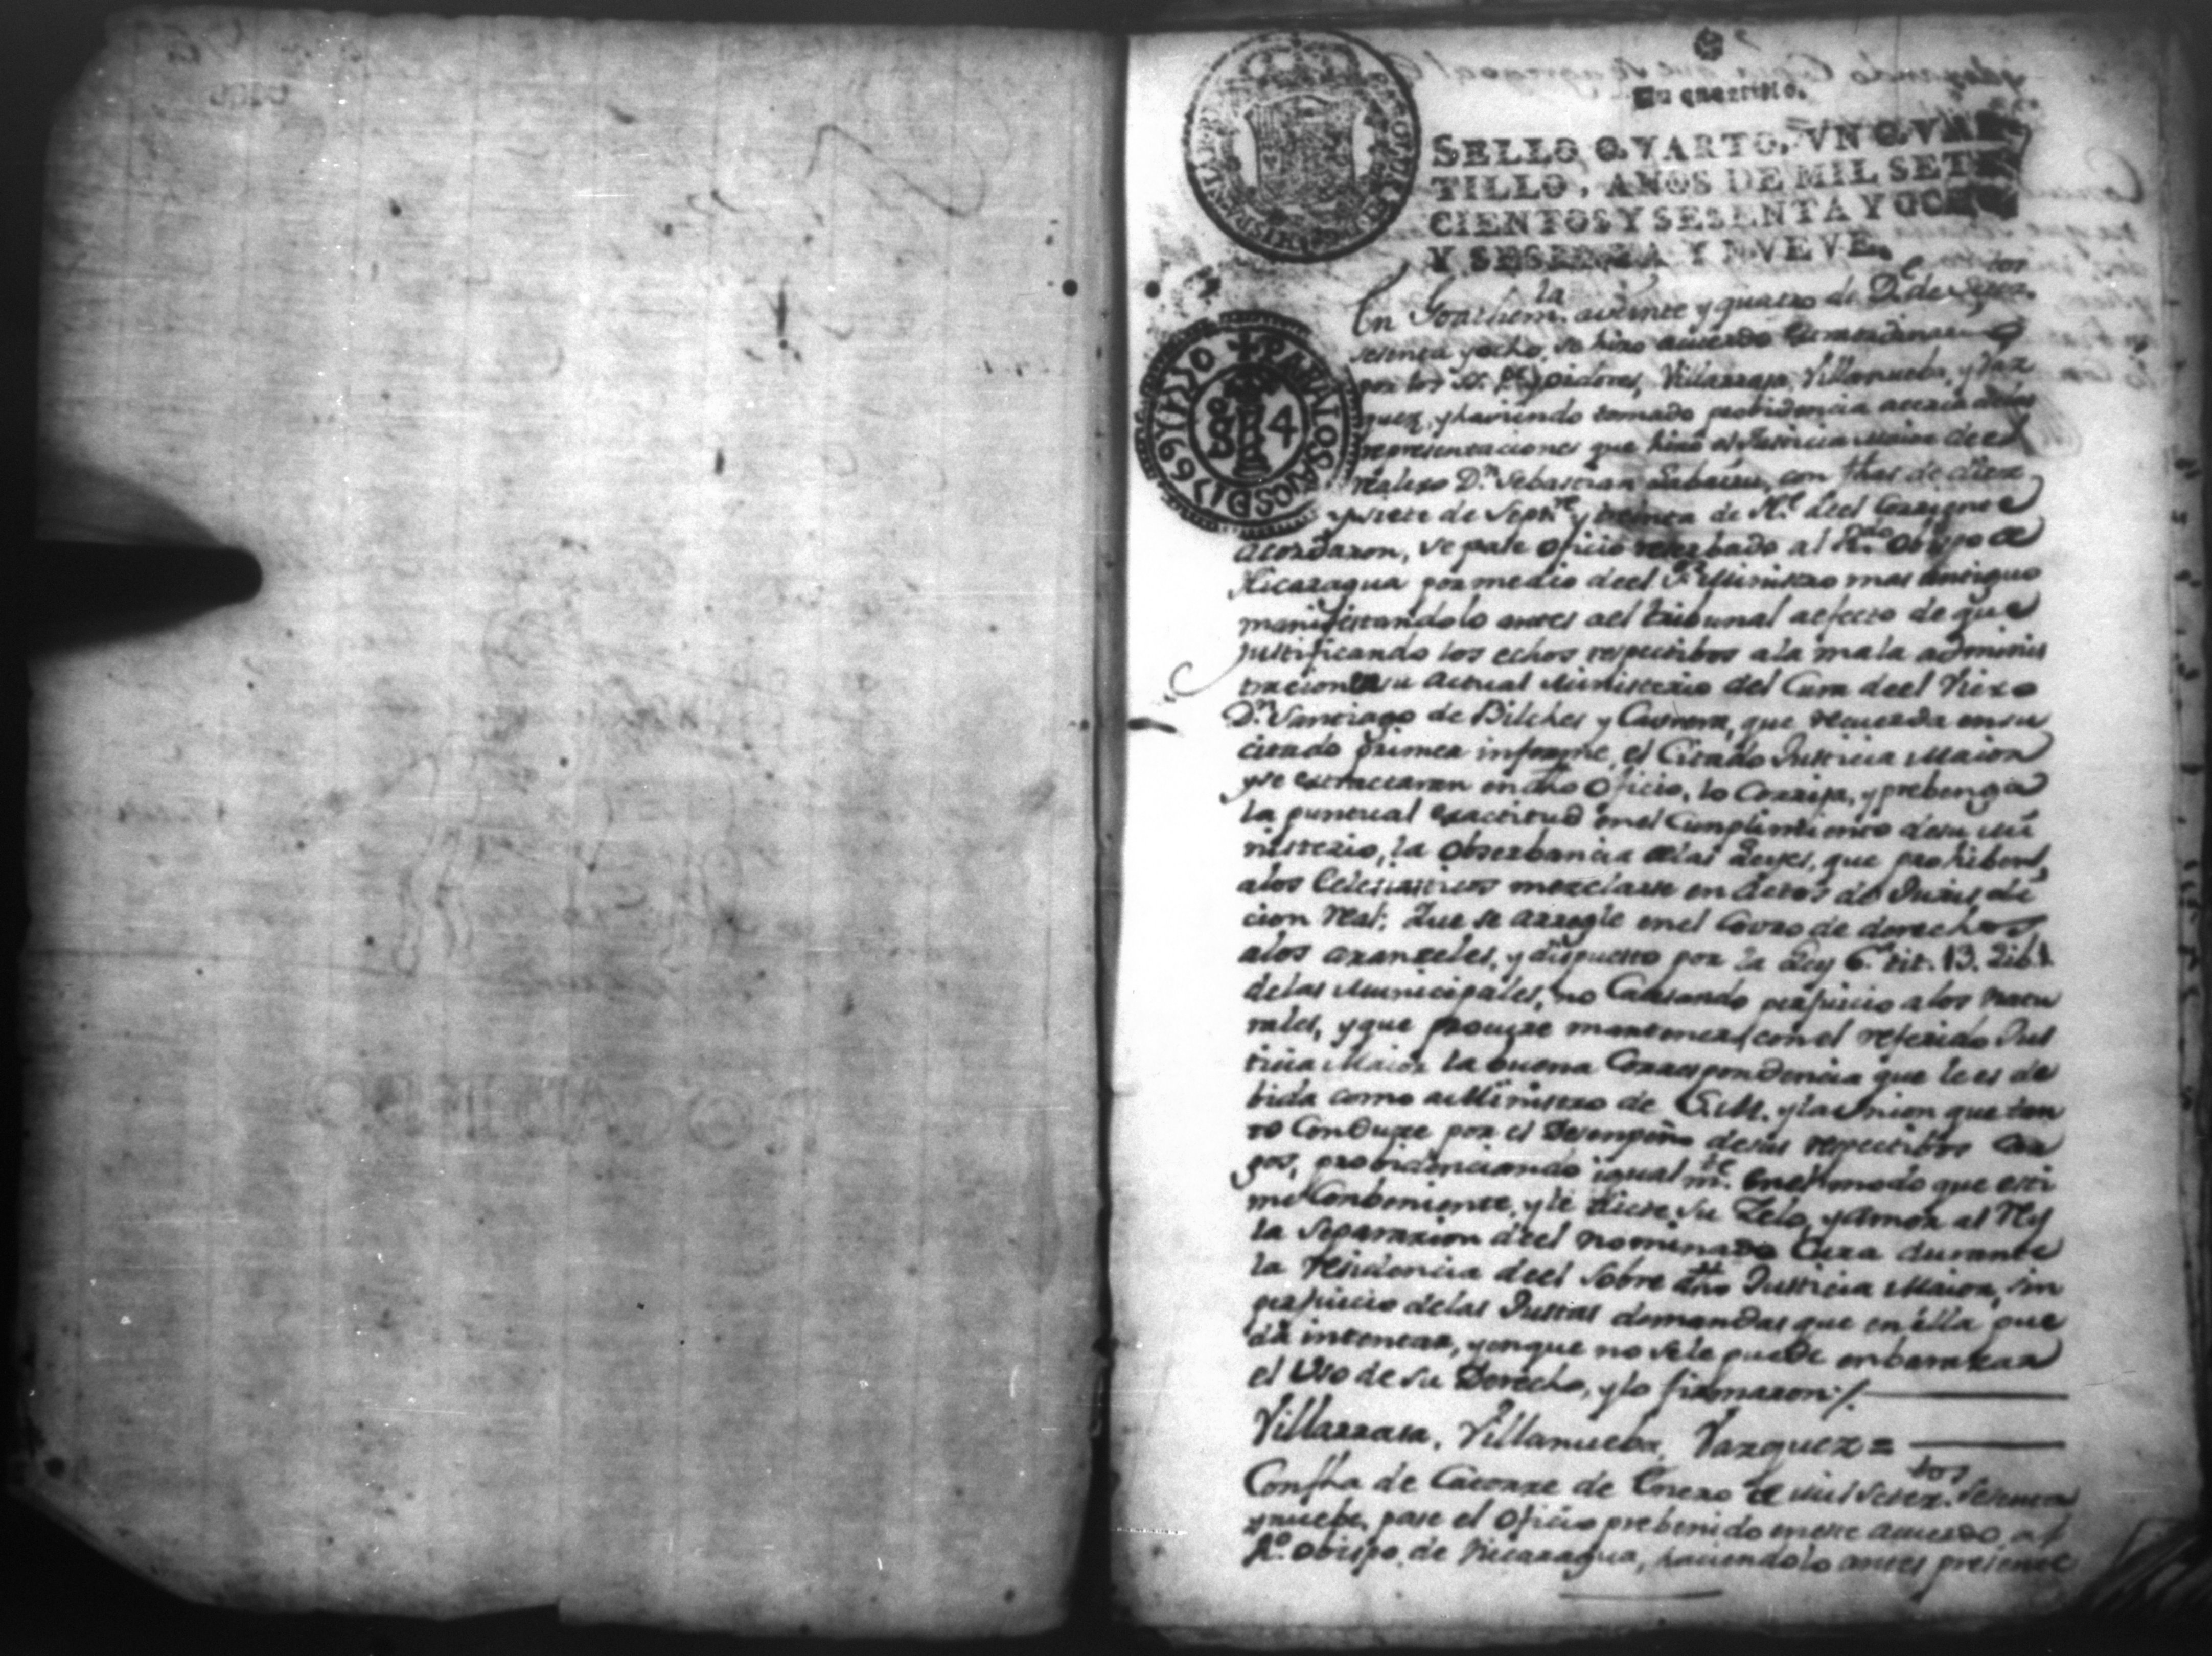 Un quartillo.
SELLO QVARTO, VN QVAR
TILLO, AÑOS DE MIL SETE
CIENTOS Y SESENTA Y OCHO
Y SESENTA Y NVEVE.
PARA LOS AÑOS D 1769 Y 1770
En Goathem.la a veinte y quatro de D.e de setez.tos
sesenta y ocho, se hizo acuerdo
por los SS. Oidores, Villarrasa, Villanueba, y Vaz
quez, y haviendo tomado probidencia acerca
representaciones que hizo el Justicia Maior de el
Realexo D.n Sebastian con fhas de diez
y siete de Sept.re y treinta de N.e deel Corriente
acordaron, se pase oficio reserbado al R.do Obispo de
Nicaragua por medio deel S.r Ministro mas antiguo
manifestandolo antes al tribunal aefecto de que
justificando los echos respectibos ala mala adminis
tracion su actual Ministerio del Cura deel Viexo
D.n Santiago de Bilches y Cabrera, que recuerda en su
citado primer informe, el Citado Justicia Maior
y se extractaran en dho Oficio, lo Corrija, y prebenga
la puntual exactitud en el Cumplimiento de su Mi
nisterio, la Obserbancia de las Leyes, que prohiben
alos Eclesiasticos mezclarse en Actos de Juris di
cion Real; Que se arregle en el Covro de derechos
alos aranzeles, y dispuesto por la Ley 6.a tit. 13. Lib. 1
delas Municipales, no Causando perjuicio a los natu
rales, y que procure mantener con el referido Jus
ticia Maior la buena Correspondencia que le es de
bida como a Ministro de S.M. y la Union que tan
to Conduze por el Desempeño de sus respectibos Car
gos, probidenciando igual m.te en el modo que esti
me Conbeniente, y le dicte su Zelo, y amor al Rey
la Separazion deel nominado Cura durante
la residencia deel Sobre dho Justicia Maior, sin
perjuicio delas Justas demandas que en ella pue
da intentar, y en que no se le puede enbarazar
el Uso de su Derecho, y lo firmaron:/.
Villarrasa, Villanueba, Vazquez =
Con fha de Catorze de Enero de mil setez.tos Sesenta
y nuebe, pase el Oficio prebenido en este acuerdo al
R.do Obispo de Nicaragua, haciendolo antes presente